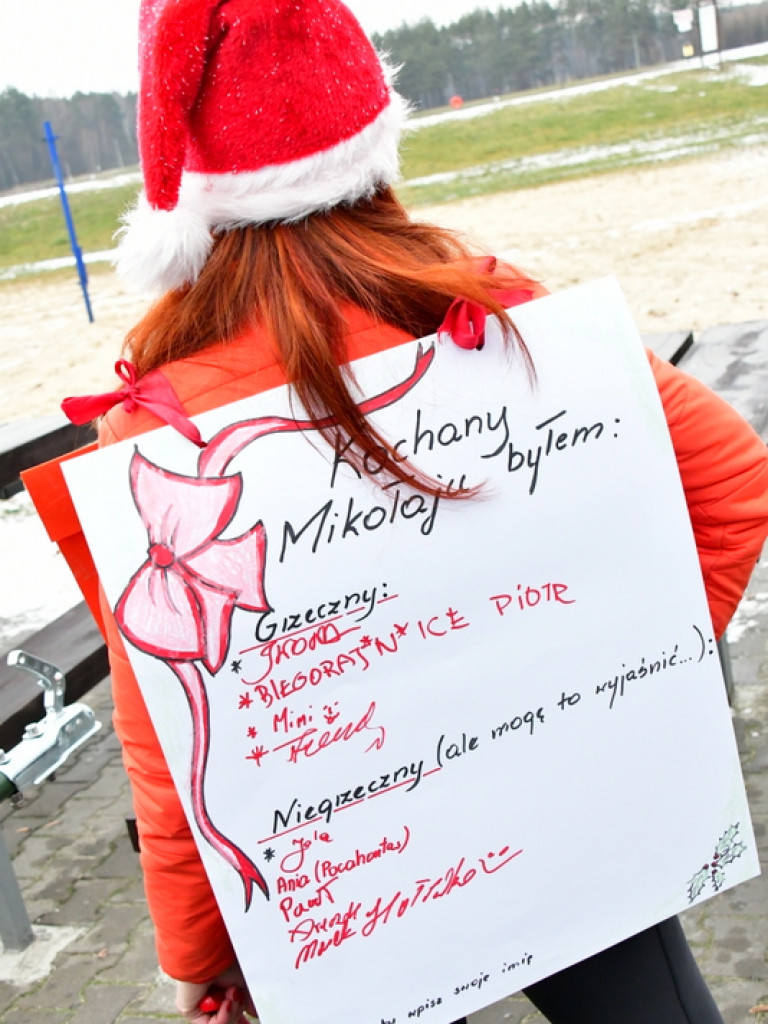 Kochany
Mikołaju byłem:
Grzeczny:
* IWONA
* BIEGORAJ*N*ICE PIOTR
* Mimi
*
Niegrzeczny (ale mogę to wyjaśnić...):
* Jola
Ania (Pocahontas)
Paweł
Marek
wpisz swoje imię